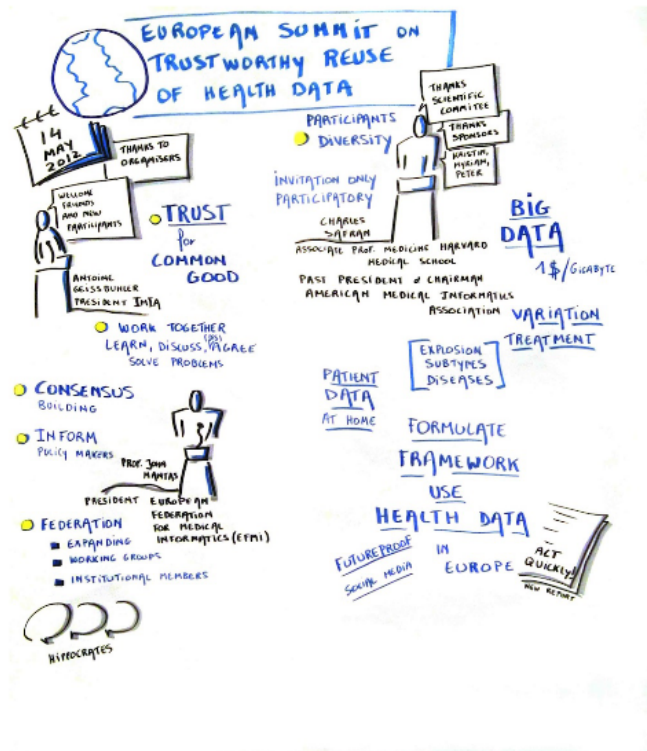 EUROPEAN SUMMIT ON
TRUSTWORTHY REUSE
OF HEALTH DATA
14
MAY
2012
THANKS TO
ORGANISERS
WELCOME
FRIENDS
AND NEW
PARTICIPANTS
ANTOINE
GEISSBUHLER
PRESIDENT IMIA
TRUST
for
COMMON
GOOD
WORK TOGETHER
LEARN, DISCUSS, (DIS)AGREE
SOLVE PROBLEMS
CONSENSUS
BUILDING
INFORM
POLICY MAKERS
PROF. JOHN
MANTAS
PRESIDENT EUROPEAN
FEDERATION
FOR MEDICAL
INFORMATICS (EFMI)
FEDERATION
EXPANDING
WORKING GROUPS
INSTITUTIONAL MEMBERS
HIPPOCRATES
PARTICIPANTS
DIVERSITY
INVITATION ONLY
PARTICIPATORY
THANKS
SCIENTIFIC
COMMITEE
THANKS
SPONSORS
KRISTIN,
MYRIAM,
PETER
CHARLES
SAFRAN
ASSOCIATE PROF. MEDICINE HARVARD
MEDICAL SCHOOL
PAST PRESIDENT & CHAIRMAN
AMERICAN MEDICAL INFORMATICS
ASSOCIATION
BIG
DATA
1$/GIGABYTE
VARIATION
TREATMENT
EXPLOSION
SUBTYPES
DISEASES
PATIENT
DATA
AT HOME
FORMULATE
FRAMEWORK
USE
HEALTH DATA
IN
EUROPE
FUTUREPROOF
SOCIAL MEDIA
ACT
QUICKLY!
NEW REPORT